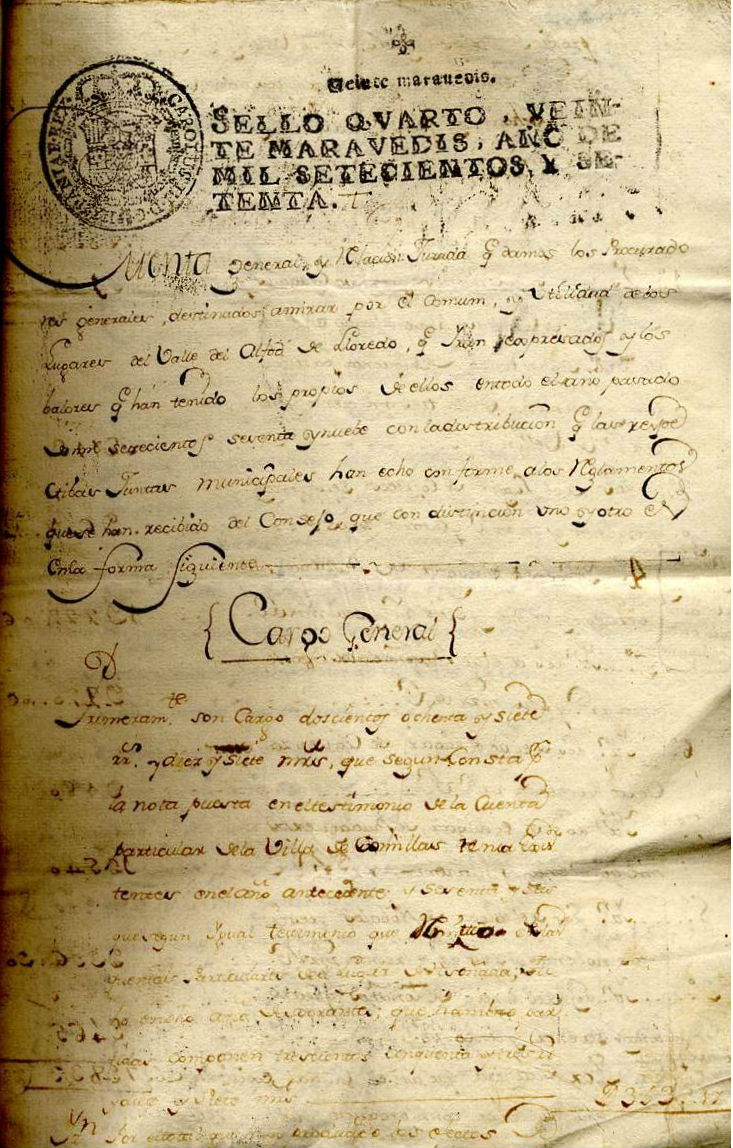 Veinte maravedis.
SELLO QVARTO, VEIN-
TE MARAVEDIS, AÑO DE
MIL SETECIENTOS, Y SE-
TENTA.
CAROLUS
Cuenta general, y Relacion Jurada q damos los Procurado
res generales, destinados amirar por el Comun, y Utilidad de los
Lugares del Valle del Alfoz de Lloredo, q Iran expresados y los
balores q han tenido los propios de ellos entodo el año pasado
setecientos sesenta y nuebe con la distribucion q las respe
ctibas Juntas Municipales han echo conforme alos Reglamentos
que se han recibido del Consejo, que con distincion uno y otro es
en la forma siguiente
Cargo General
Primeram.te son Cargo doscientos ochenta y siete
rr.s y diez y siete mrs, que segun Consta p.r
la nota puesta en el testimonio de la Cuenta
particular de la Villa de Comillas tenia Exis
tentes en el año antecedente y sesenta y seis
que segun Igual testimonio que
Particular del Lugar de
que ambas par
tidas componen trescientos cinquenta y tres rr.s
y siete mrs
353.17
producido los efectos